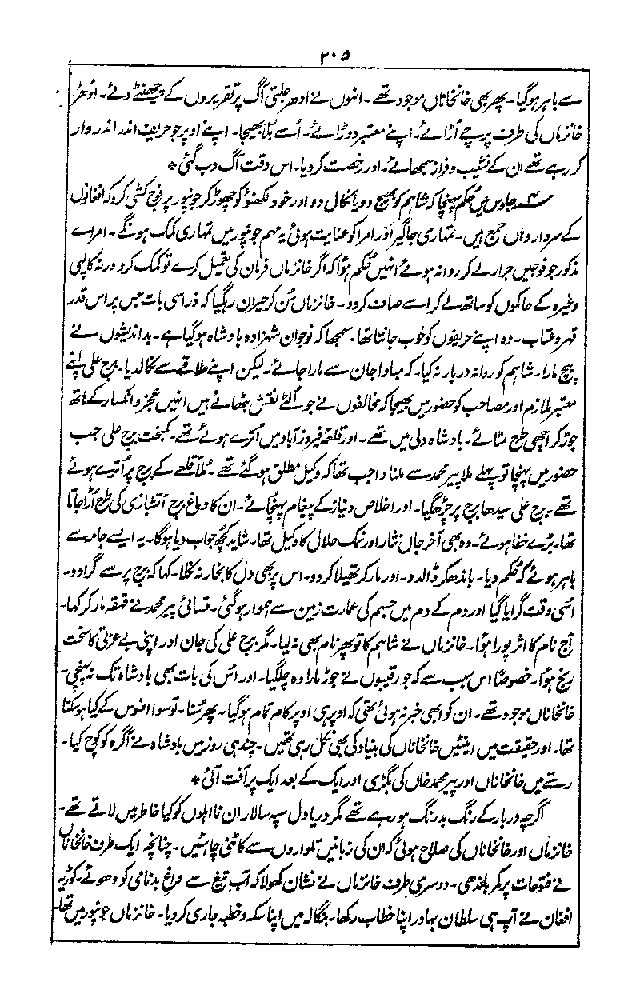 ۲۰۵
سے باہر ہوگیا۔ پھر بھی خانخاناں موجود تھے۔ انہوں نے ادھر جلتی آگ پر تقریروں کے چھینٹے دئے۔ اُدھر
خانزماں کی طرف پرچے اُڑائے۔ اپنے معتبر دوڑائے۔ اُسے بُلا بھیجا۔ اپنے اوپر جو حریف اندر اندر وار
کر رہے تھے ان کے نشیب و فراز سمجھائے۔ اور رخصت کردیا۔ اس وقت آگ دب گئی *
سنہ جلوس میں حُکم پہنچا کہ شاہم کو بھیج دو یا نکال دو اور خود لکھنؤ کو چھوڑ کر جونپور پر فوج کشی کرو کہ افغانوں
کے سردار وہاں جمع ہیں۔ تمہاری جاگیر اور امرا کو عنایت ہوئی یہ مہم جونپور میں تمہاری کمک ہونگے۔ امراے
مذکور جو فوجیں جرار لے کر روانہ ہوئے انہیں حُکم ہُوا کہ اگر خانزماں فرمان کی تعمیل کرے تو کمک کرو ورنہ کالپی
وغیرہ کے حاکموں کو ساتھ لے کر اسے صاف کردو۔ خانزماں سُن کر حیران رہ گیا کہ ذراسی بات جس پر اس قدر
قہر و عتاب۔ وہ اپنے حریفوں کو خوب جانتا تھا۔ سمجھا کہ نوجوان شہزادہ بادشاہ ہوگیا ہے۔ بداندیشوں نے
پیچ مارا۔ شاہم کو روانہ دربار نہ کیا۔ کہ مبادا جان سے مارا جائے۔ لیکن اپنے علاقے سے نکالدیا۔ برج علی اپنے
معتبر ملازم اور مصاحب کو حضور میں بھیجا کہ مخالفوں نے جو اُلٹے نقش بٹھائے ہیں انہیں عجز و انکسار کے ہاتھ
جوڑ کر اچھی طرح مٹائے۔ بادشاہ دلی میں تھے۔ اور قلعہ فیروز آباد میں اُترے ہوئے تھے۔ کمبخت برج علی جب
حضور میں پہنچا تو پہلے ملا پیر محمد سے ملنا واجب تھا کہ وکیل مطلق ہوگئے تھے۔ مُلّا قلعے کے برج پر اُترے ہوئے
تھے۔ برج علی سیدھا برج پر چڑھ گیا۔ اور اخلاص و نیاز کے پیغام پہنچائے۔ ان کا دماغ برج آتشبازی کی طرح اُڑا جاتا
تھا۔ بڑے خفا ہوئے۔ وہ بھی آخر جاں نثار اور نمک حلال کا وکیل تھا۔ شاید کچھ جواب دیا ہوگا۔ یہ ایسے جامے سے
باہر ہوئے کہ حُکم دیا۔ باندھ کر ڈالدو۔ اور مار کر تھیلا کردو۔ اس پر بھی دل کا بخار نہ نکلا۔ کہا کہ برج پر سے گرا دو۔
اُسی وقت گرایا گیا اور دم کے دم میں جسم کی عمارت زمین سے ہموار ہوگئی۔ قسائی پیر محمد نے قہقہہ مار کر کہا۔
آج نام کا اثر پورا ہُوا۔ خانزماں نے شاہم کا تو پھر نام بھی نہ لیا۔ مگر برج علی کی جان اور اپنی بے عزتی کا سخت
رنج ہُوا۔ خصوصاً اس سبب سے کہ جو رقیبوں نے جوڑ مارا وہ چلگیا۔ اور اُس کی بات بھی بادشاہ تک نہ پہنچی۔
خانخاناں موجود تھے۔ ان کو ابھی خبر نہ ہوئی تھی کہ اوپر ہی اوپر کام تمام ہوگیا۔ پھر سُنا۔ تو سوا افسوس کے کیا ہوسکتا
تھا۔ اور حقیقت میں اینٹیں خانخاناں کی بنیاد کی بھی نکل رہی تھیں۔ چند ہی روز میں بادشاہ نے آگرہ کو کوچ کیا۔
رستے میں خانخاناں اور پیر محمد خاں کی بگڑی اور ایک کے بعد ایک پر آفت آئی *
اگرچہ دربار کے رنگ بدرنگ ہو رہے تھے مگر دریا دل سپہ سالار ان نااہلوں کو کیا خاطر میں لاتے تھے۔
خانزماں اور خانخاناں کی صلاح ہوئی کہ ان کی زبانیں تلواروں سے کاٹنی چاہئیں۔ چنانچہ ایک طرف خانخاناں
نے فتوحات پر کمر باندھی۔ دوسری طرف خانزماں نے نشان کھولا کہ آب تیغ سے داغ بدنامی کو دھوئے۔ کوڑیہ
افغان نے آپ ہی سلطان بہادر اپنا خطاب رکھا۔ بنگالہ میں اپنا سکہ و خطبہ جاری کردیا۔ خانزماں جونپور میں تھا